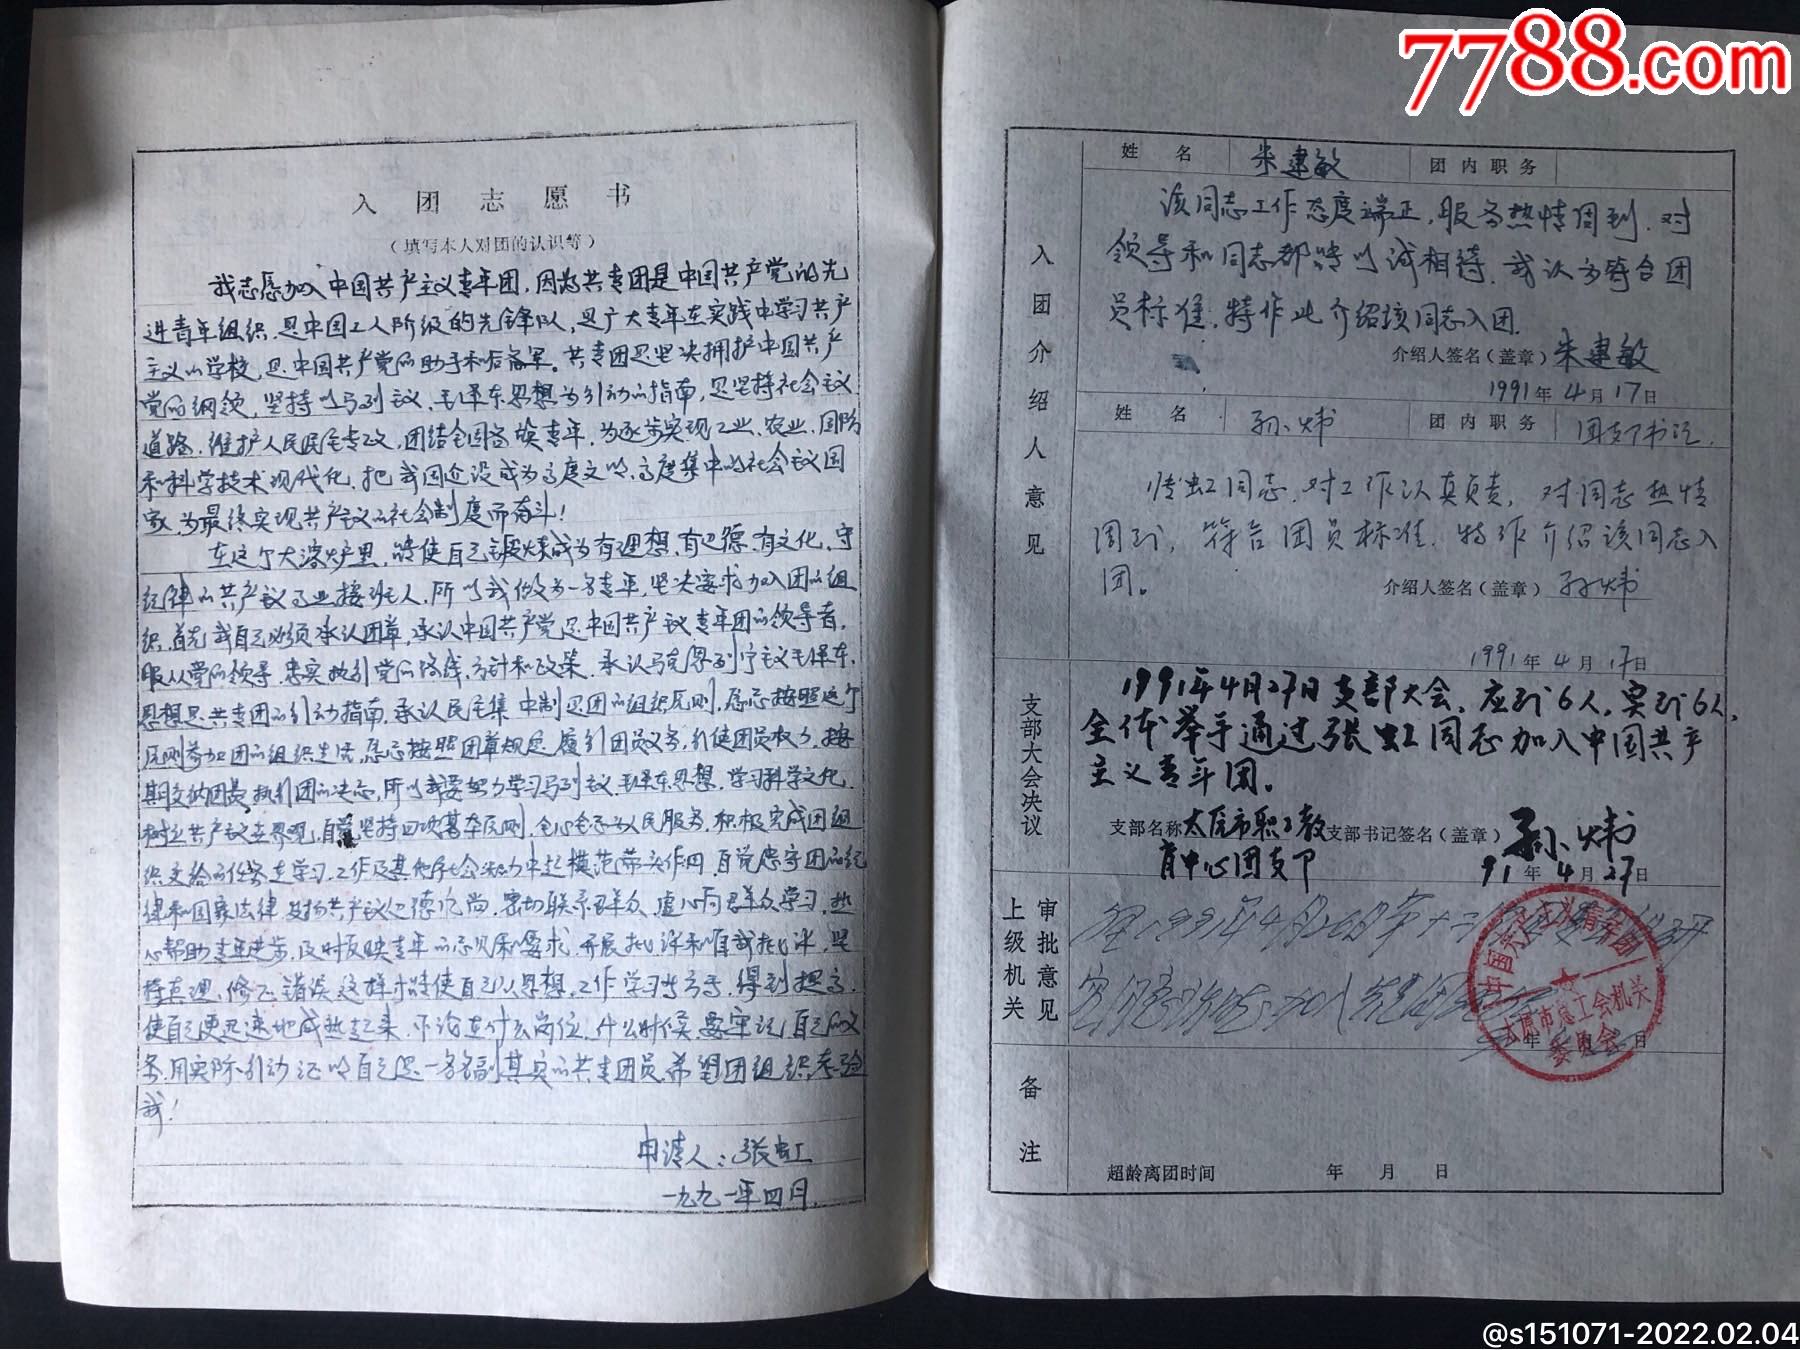 7788.com
入团志愿书
（填写本人对团的认识等）
我志愿加入中国共产主义青年团，因为共青团是中国共产党的先
进青年组织，是中国工人阶级的先锋队，是广大青年在实践中学习共产
主义的学校，是中国共产党的助手和后备军。共青团是坚决拥护中国共产
党的纲领，坚持以马列主义、毛泽东思想为行动的指南，是坚持社会主义
道路，维护人民民主专政，团结全国各族青年，为逐步实现工业、农业、国防
和科学技术现代化，把我国建设成为高度文明、高度集中的社会主义国
家，为最终实现共产主义的社会制度而奋斗！
在这个大熔炉里，能使自己锻炼成为有理想、有道德、有文化、守
纪律的共产主义事业接班人，所以我做为一名青年，坚决要求加入团的组
织，首先我自己必须承认团章，承认中国共产党是中国共产主义青年团的领导者，
服从党的领导，忠实执行党的路线、方针和政策，承认马克思列宁主义毛泽东
思想是共青团的行动指南，承认民主集中制是团的组织原则，愿意按照这个
原则参加团的组织生活，愿意按照团章规定，履行团员义务，行使团员权力，按
期交纳团费，执行团的决定，所以我要努力学习马列主义、毛泽东思想，学习科学文化，
树立共产主义世界观，自觉坚持四项基本原则，全心全意为人民服务，积极完成团组
织交给的任务，在学习、工作及其他社会活动中起模范带头作用，自觉遵守团的纪
律和国家法律，发扬共产主义道德风尚，密切联系群众，虚心向群众学习，热
心帮助青年进步，及时反映青年的意见和要求，开展批评和自我批评，坚
持真理，修正错误，这样才能使自己从思想、工作、学习等方面，得到提高，
使自己更迅速地成熟起来，不论在什么岗位，什么时候，要牢记自己的义
务，用实际行动证明自己是一名名副其实的共青团员，希望团组织考验
我！
申请人：张虹
一九九一年四月
入团介绍人意见
姓名 朱建敏 团内职务
该同志工作态度端正，服务热情周到，对
领导和同志都能以诚相待，我认为符合团
员标准，特作此介绍该同志入团。
介绍人签名（盖章）朱建敏
1991年4月17日
姓名 孙炜 团内职务 团支部书记
张虹同志，对工作认真负责，对同志热情
周到，符合团员标准，特作介绍该同志入
团。
介绍人签名（盖章）孙炜
1991年4月17日
支部大会决议
1991年4月27日支部大会，应到6人，实到6人，
全体举手通过张虹同志加入中国共产
主义青年团。
支部名称 太原市职工教 支部书记签名（盖章）孙炜
育中心团支部
91年4月27日
上级机关审批意见
年 月 日
中国共产主义青年团
太原市总工会机关
委员会
备注
超龄离团时间 年 月 日
@s151071-2022.02.04